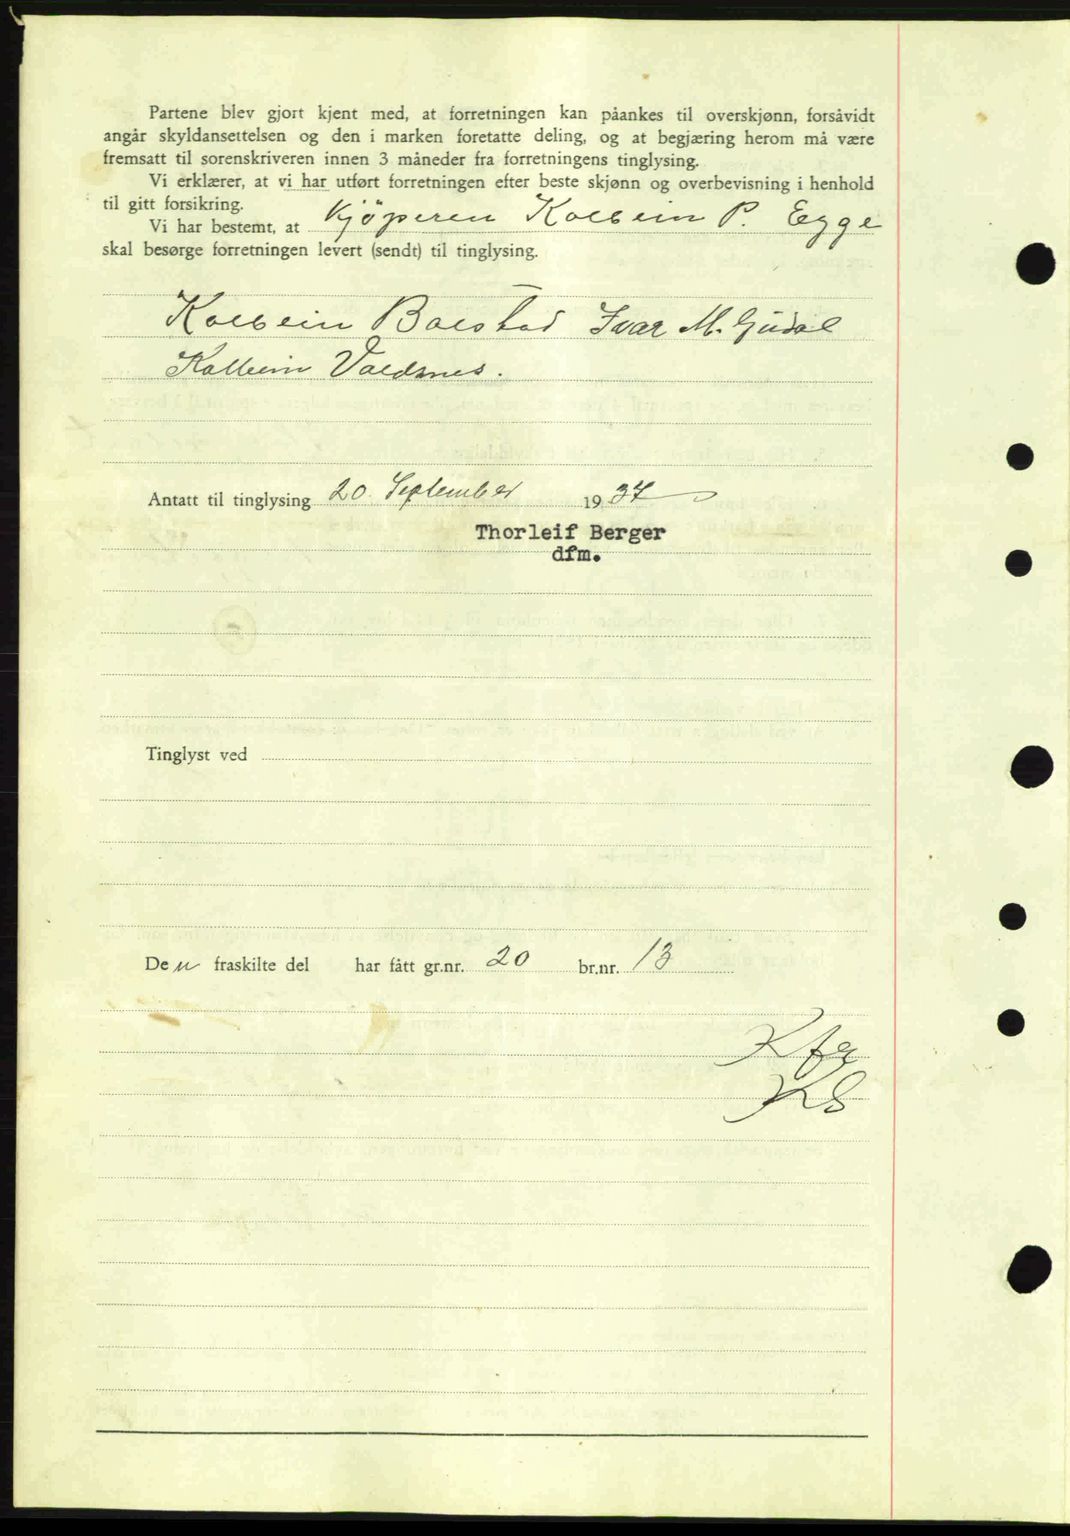 Partene blev gjort kjent med, at forretningen kan påankes til overskjønn, forsåvidt
angår skyldansettelsen og den i marken foretatte deling, og at begjæring herom må være
fremsatt til sorenskriveren innen 3 måneder fra forretningens tinglysing.
Vi erklærer, at vi har utført forretningen efter beste skjønn og overbevisning i henhold
til gitt forsikring.
Vi har bestemt, at Kjöperen Kolbein P. Egge
skal besørge forretningen levert (sendt) til tinglysing.
Kolbein Bolstad Ivar M. Gudal
Kolbein Valdsnes.
Antatt til tinglysing 20. September 1937
Thorleif Berger
dfm.
Tinglyst ved
Den fraskilte del har fått gr.nr. 20 br.nr. 13
Kfr
KS